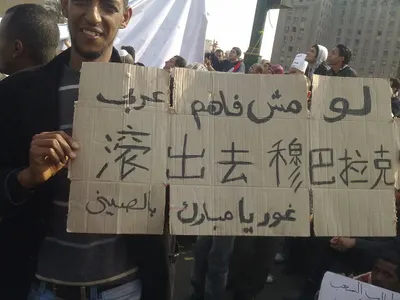 لو مش فاهم عربي
滚出去穆巴拉克
غور يا مبارك بالصيني